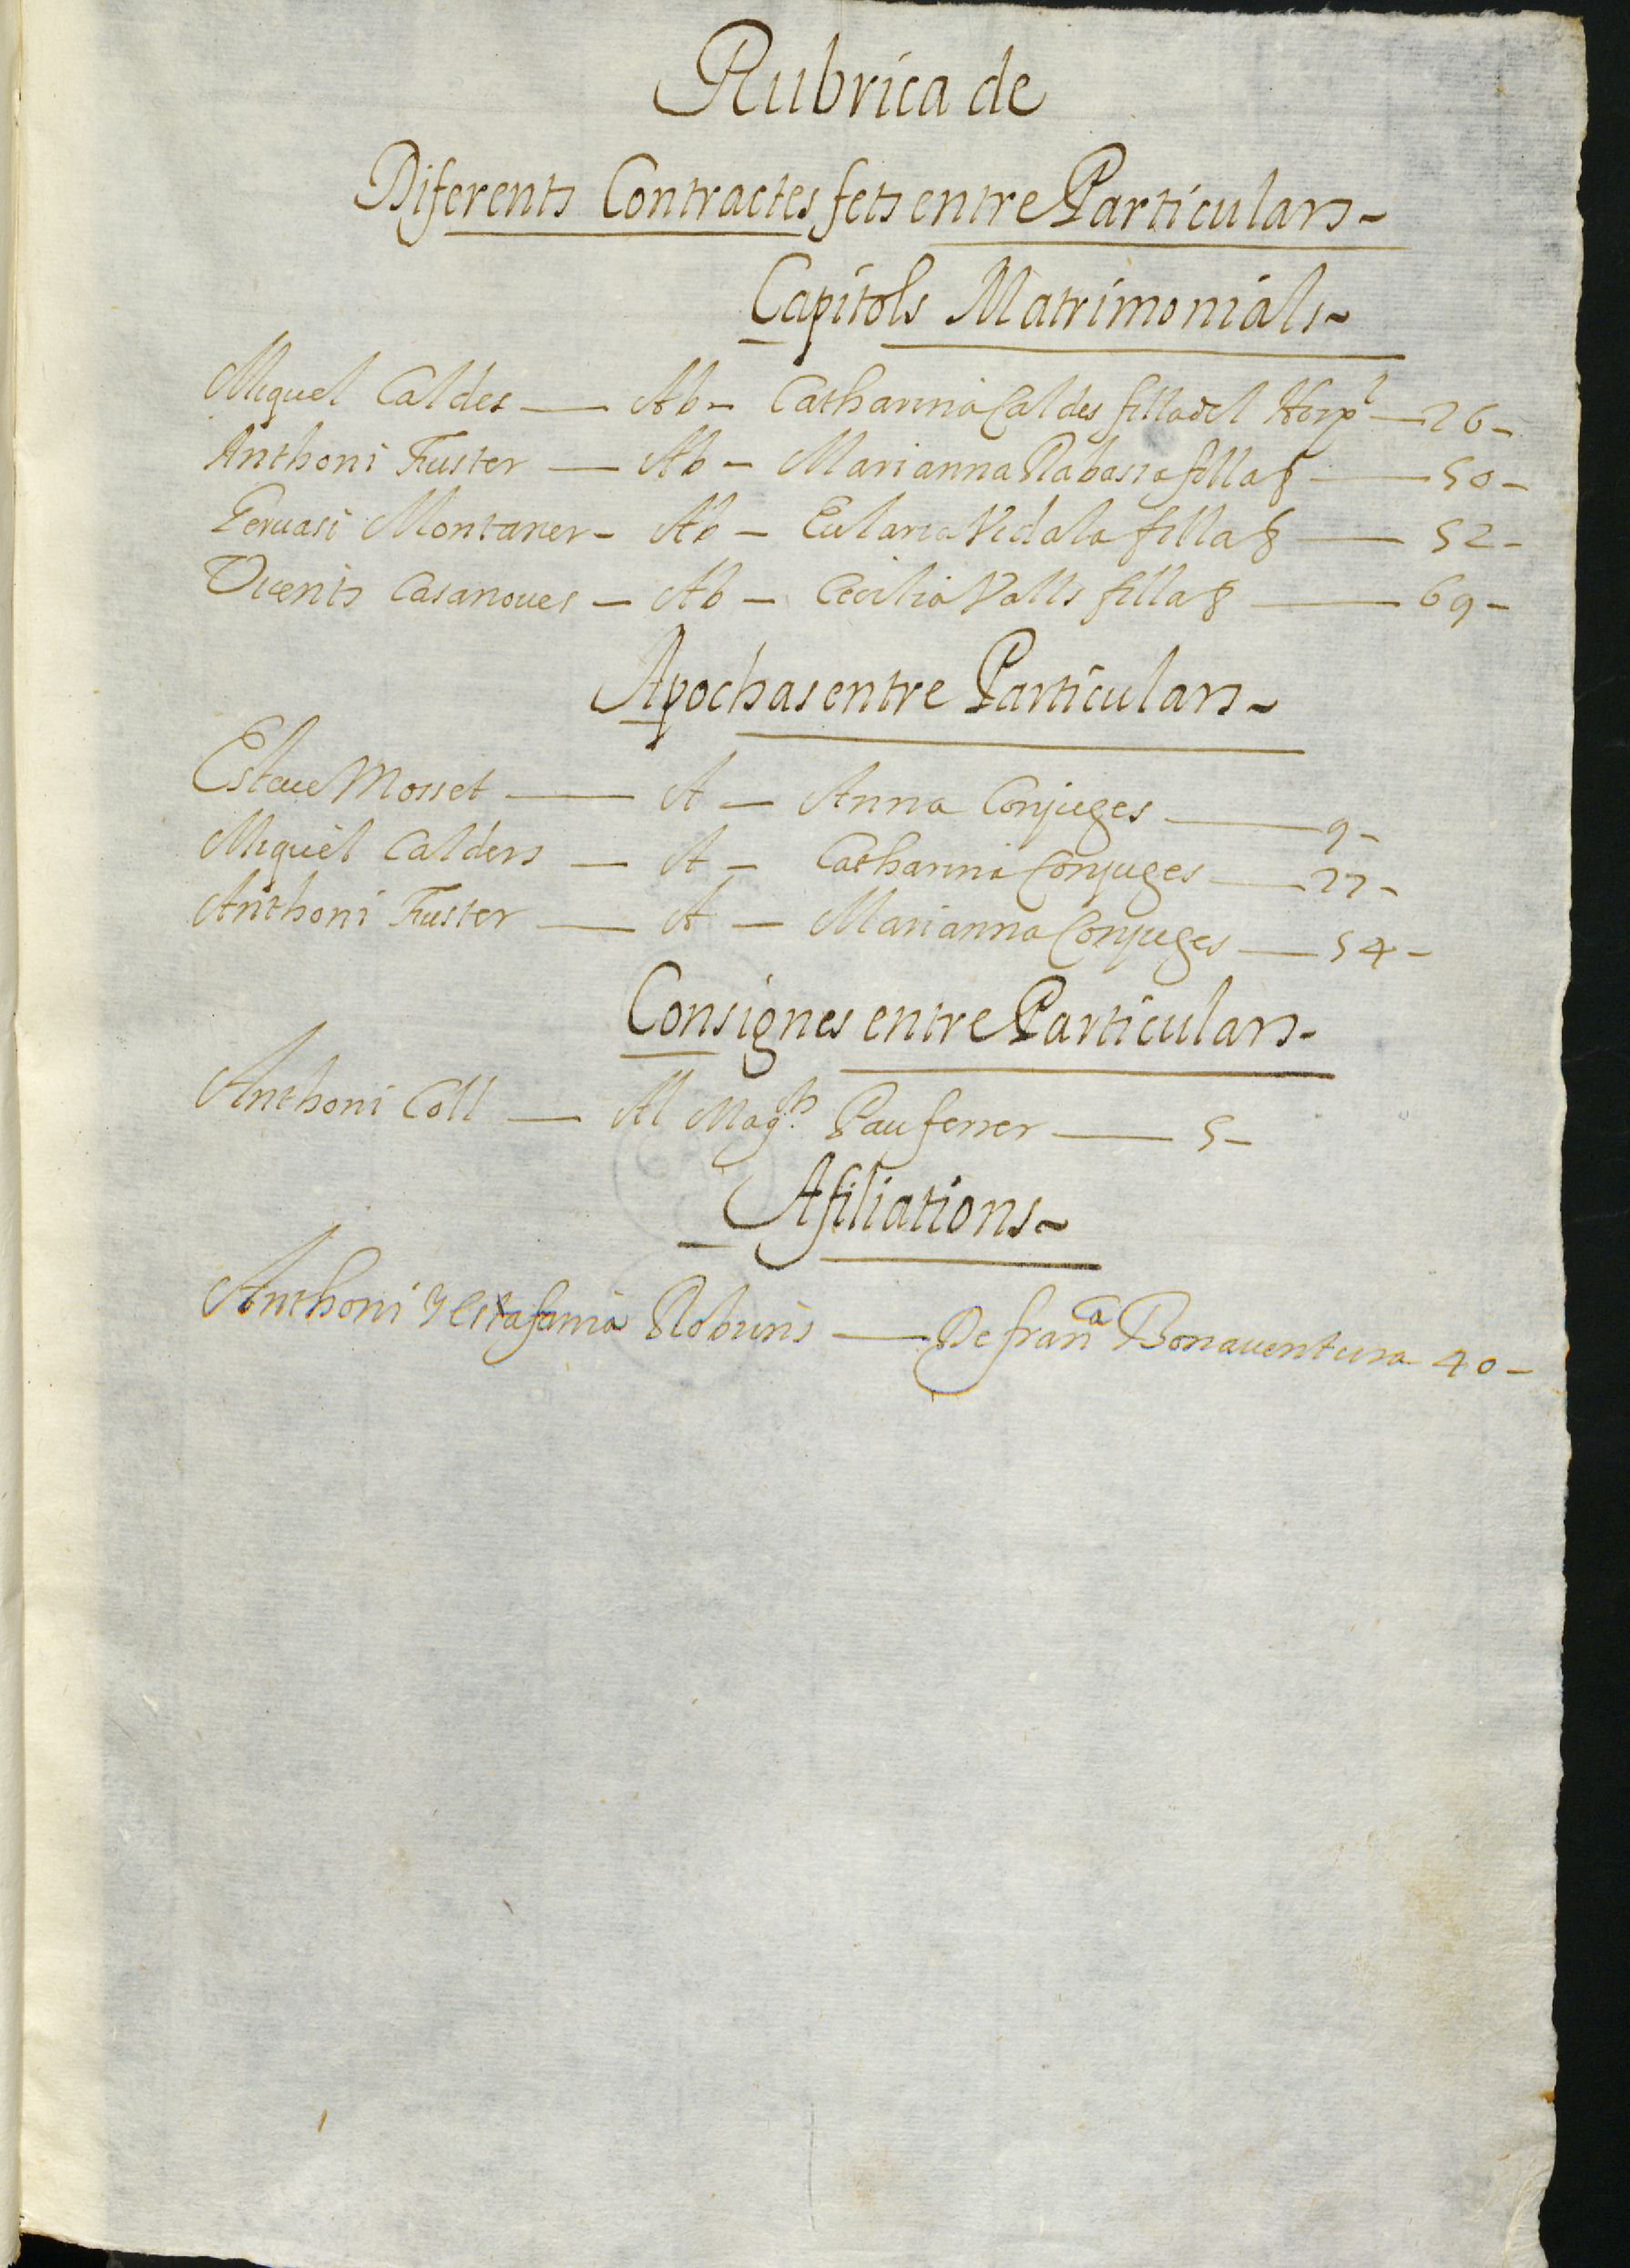 Rubrica de
Diferents Contractes fets entre Particulars-
Capitols Matrimonials-
Miquel Caldes — Ab - Catharina Caldes filla del Hosp.l — 26-
Anthoni Fuster — Ab - Marianna Rabassa filla — 50-
Geruasi Montaner - Ab - Eularia Vidala filla — 52-
Vicents Casanoues - Ab - Cecilia Valls filla — 69-
Apochas entre Particulars-
Esteue Mosset — A - Anna Conjuges — 9-
Miquel Calders — A - Catharina Conjuges — 27-
Anthoni Fuster — A - Marianna Conjuges — 54-
Consignes entre Particulars-
Anthoni Coll — Al Mag.ch Pau ferrer — 5-
Afiliations-
Anthoni y Estafania — De fran.a Bonauentura 40-